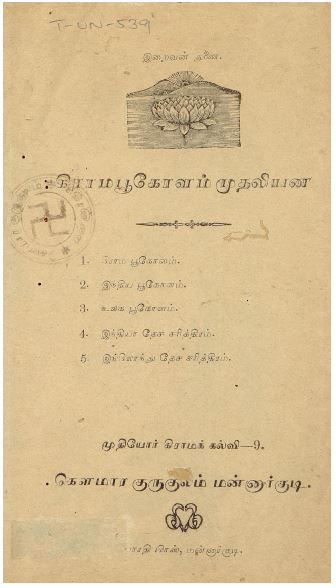 T-UN-539
இறைவன் துணை.
கிராமபூகோளம் முதலியன
1. கிராம பூகோளம்.
2. இந்திய பூகோளம்.
3. உலக பூகோளம்.
4. இந்தியா தேச சரித்திரம்.
5. இங்கிலாந்து தேச சரித்திரம்.
முதியோர் கிராமக் கல்வி—9.
கௌமார குருகுலம் மன்னார்குடி.
பாரதி பிரஸ், மன்னார்குடி.